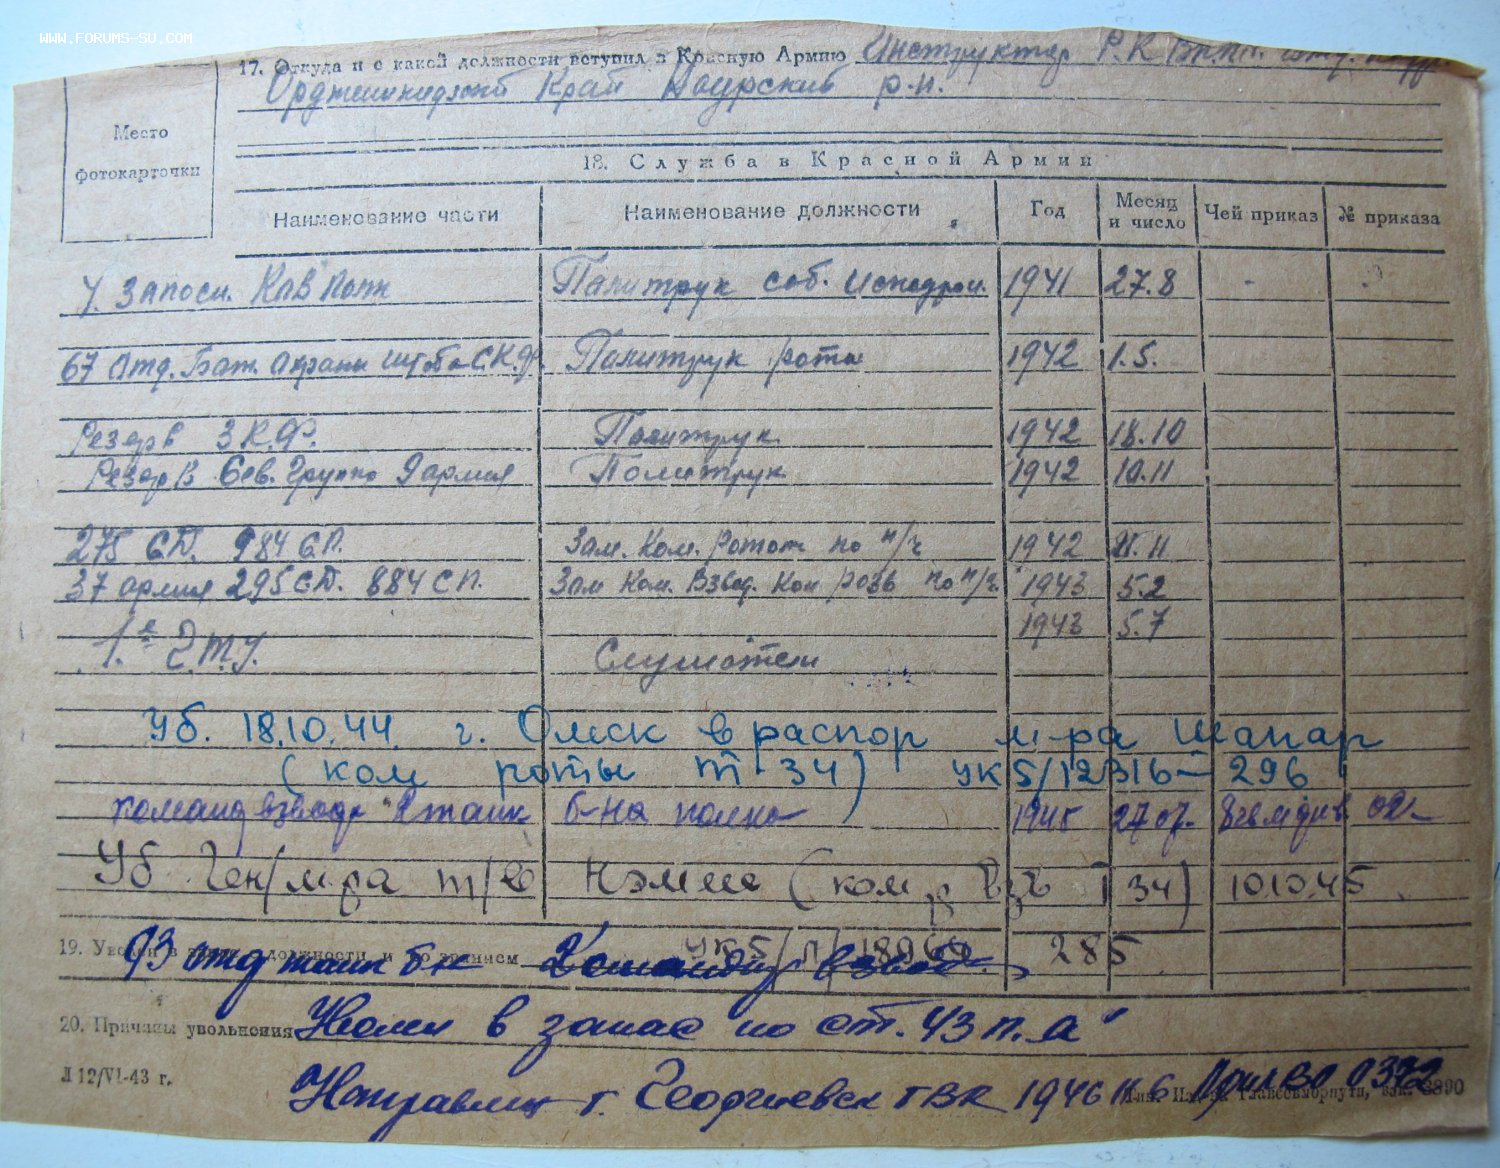 WWW.FORUMS-SU.COM
17. Откуда и с какой должности вступил в Красную Армию Инструктор Р.К
Орджоникидзевский Край Наурский р-н.
Место
фотокарточки
18. Служба в Красной Армии
Наименование части Наименование должности Год Месяц и число Чей приказ № приказа
У. Запасн. Кав Полк Политрук саб. 1941 27.8 -
67 Отд. Бат. Охраны Штаба С.К.Ф. Политрук роты 1942 1.5.
Резерв З.К.Ф. Политрук 1942 18.10
Резерв Сев. Группа 9 армия Политрук 1942 10.11
275 С.Д. 984 С.П. Зам. Ком. ротой по п/ч 1942 11
37 армия 295 С.Д. 884 СП. Зам Ком. Взвод. по п/ч 1943 5.2
1943 5.7
1е Слушатель
Уб. 18.10.44. г. Омск в распор м-ра Шапар
(ком роты Т-34) УК5/12316 - 296
команд взвода танк б-на полка 1945 27.07.
Уб Ген/м-ра т/в (ком. Т 34) 10.10.45
19. Уволен в должности и по званием УК-5/ 285
93 отд танк бн Командир взвода
20. Причины увольнения Уволен в запас по ст. 43 п. "а"
Л 12/VI-43 г.
Направлен г. Георгиевск ГВК 1946 Прик ВО 0392